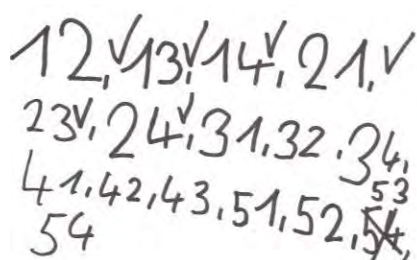 12,✓13,✓14,✓21,✓
23✓,24,✓31,32.34,
41,42,43,51,52,53
54